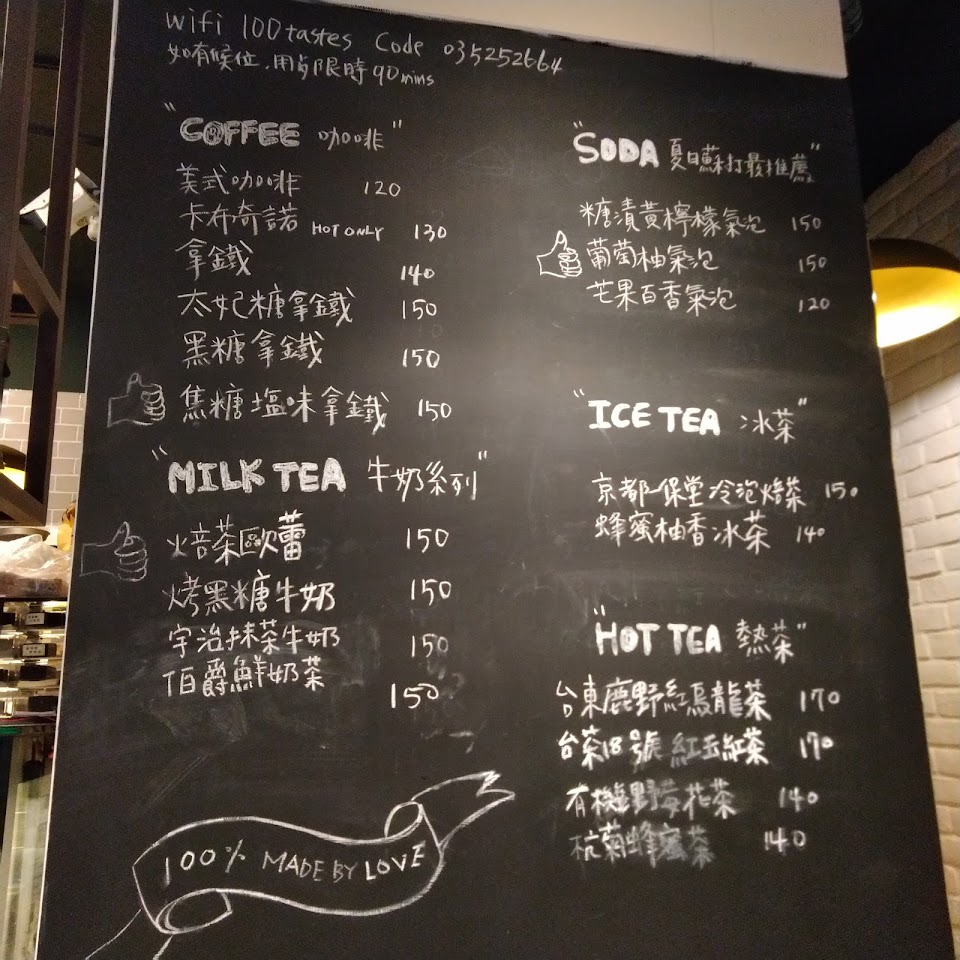 wifi 100tastes Code 035252664
如有候位，用歺限時90mins
"COFFEE 咖啡"
美式咖啡 120
卡布奇諾 HOT ONLY 130
拿鐵 140
太妃糖拿鐵 150
黑糖拿鐵 150
焦糖塩味拿鐵 150
"MILK TEA 牛奶系列"
焙茶歐蕾 150
烤黑糖牛奶 150
宇治抹茶牛奶 150
伯爵鮮奶茶 150
100% MADE BY LOVE
"SODA 夏日蘇打最推薦"
糖漬黃檸檬氣泡 150
葡萄柚氣泡 150
芒果百香氣泡 120
"ICE TEA 冰茶"
京都一保堂冷泡焙茶 150
蜂蜜柚香冰茶 140
"HOT TEA 熱茶"
台東鹿野紅烏龍茶 170
台茶18號 紅玉紅茶 170
有機野莓花茶 140
杭菊蜂蜜茶 140